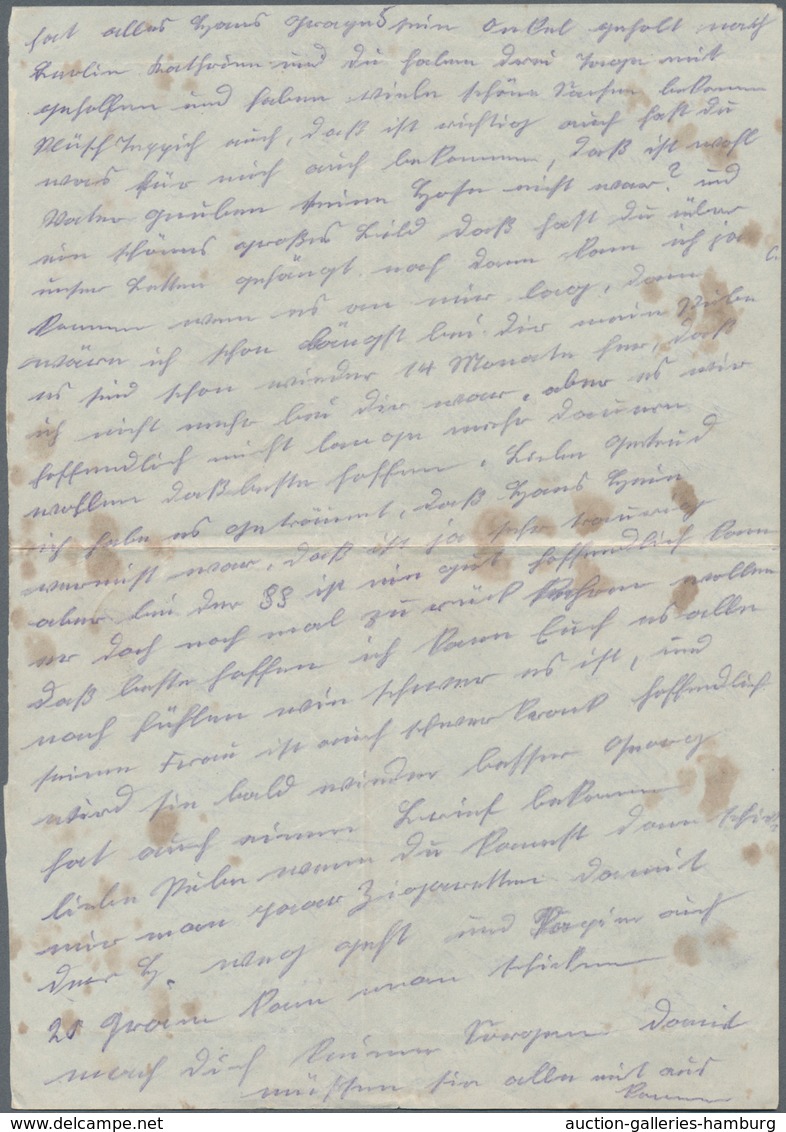 hat alles Hans sein Onkel geholt nach
Berlin Kathrine und du haben drei Tage mit
geholfen und haben viele schöne Sachen bekommen
Plüsch Teppich auch, daß ist richtig auch hast du
was für mich auch bekommen, daß ist wohl
Vater seine Hose nicht war? und
ein schönes großes Bild daß hast du über
unser Betten gehängt. noch dann kann ich ja
kommen wen es an mir lag, dann
wäre ich schon längst bei Dir mein
es sind schon wieder 14 Monate her, daß
ich nicht mehr bei dir war, aber es wir
hoffendlich nicht lange mehr dauern
wohlen daß beste hoffen. Liebe Gertrud
ich habe es geträumt, daß Hans Hein
vermist war, daß ist ja sehr traurig
aber bei der SS ist ein gut hoffendlich kann
er doch noch mal zu rück kehren wollen
daß beste hoffen ich kann Euch es alle
nach fühlen wie schwer es ist, und
seine Frau ist auch schwer krank hoffendlich
wird sie bald wieder besser Georg
hat auch einen Brief bekommen
liebe wenn du kannst dann
mir man paar Zigaretten damit
der H. weg geht und Papier auch
20 Gram kann man schicken
mach dich keine Sorgen damit
müssen sie alle mit aus
kommen
auction-galleries-hamburg